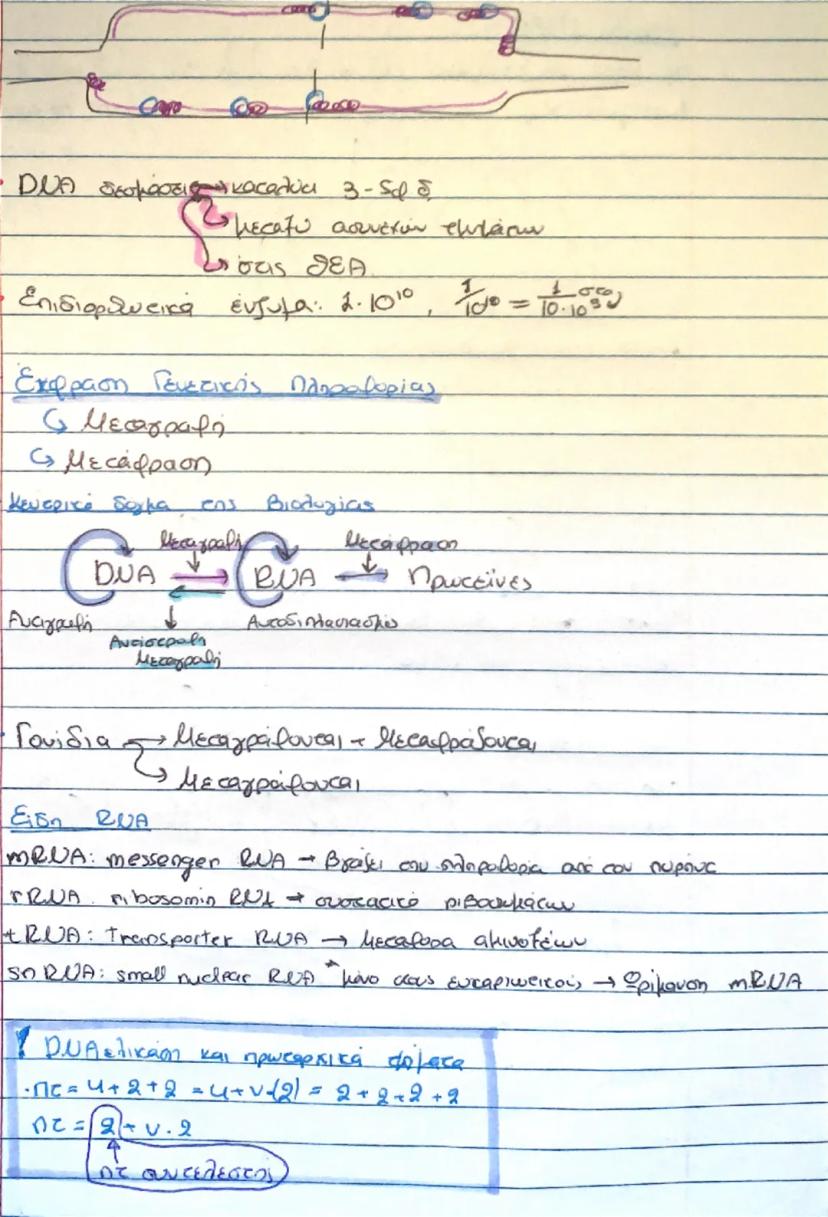 DNA δεσμάση → καταλύει 3-5φδ
→ μεταξύ ασυνεχών τμημάτων
→ στις ΘΕΑ
Επιδιορθωτικά ένζυμα: 1·10¹⁰, 1/10¹⁰ = 1/10·10⁹ στα
Έκφραση Γενετικής Πληροφορίας
↳ Μεταγραφή
↳ Μετάφραση
Κεντρικό δόγμα της Βιολογίας
Μεταγραφή Μετάφραση
DNA RNA → Πρωτεΐνες
Αντιγραφή Αυτοδιπλασιασμός
Αντίστροφη
Μεταγραφή
Γονίδια → Μεταγράφονται + Μεταφράζονται
→ Μεταγράφονται
Είδη RNA
mRNA: messenger RNA → Βγάζει την πληροφορία από τον πυρήνα
rRNA: ribosomin RNA → συστατικό ριβοσωμάτων
tRNA: transporter RNA → μεταφορά αμινοξέων
snRNA: small nuclear RNA * μόνο στους ευκαρυωτικούς → Ωρίμανση mRNA
! DNA ελικάση και πρωταρχικά τμήματα
·πτ = 4+2+2 = 4+ν(2) = 2+2+2+2
πτ = 2+ν·2
πτ συντελεστής